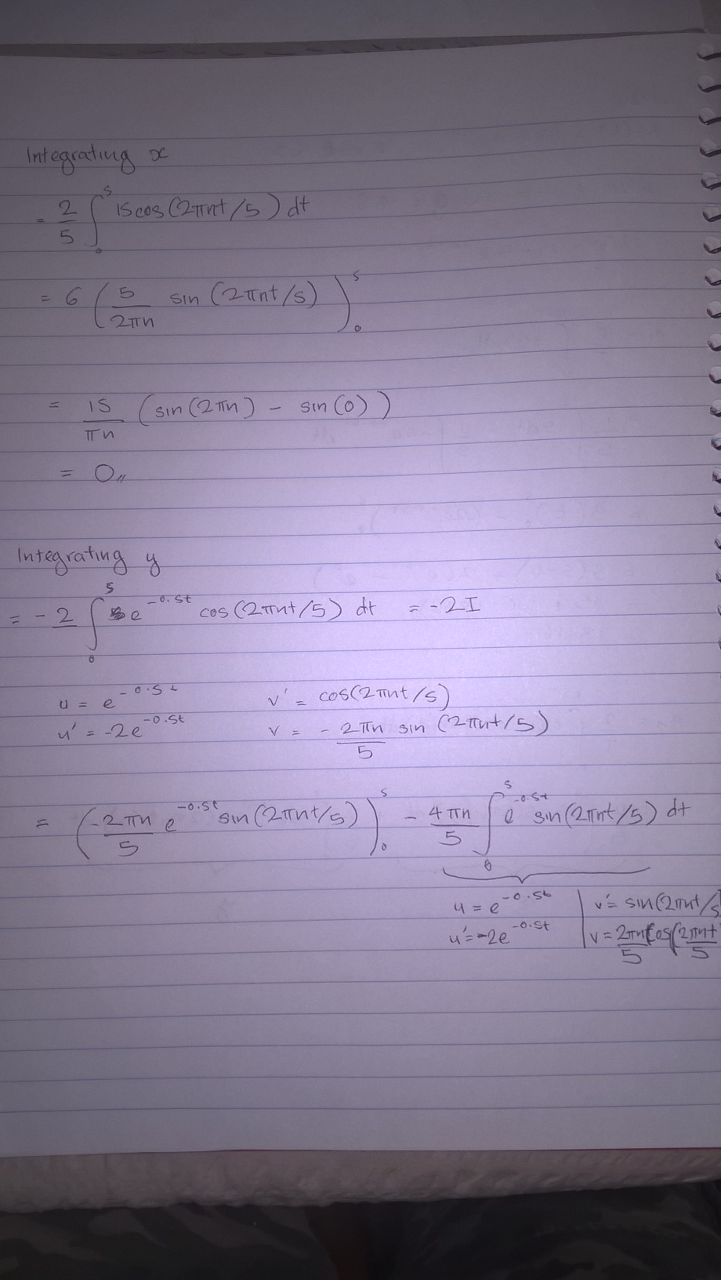 Integrating x
= 2/5 ∫₀⁵ 15cos(2πnt/5) dt
= 6 ( 5/2πn sin (2πnt/5) )₀⁵
= 15/πn (sin(2πn) - sin(0))
= 0,,
Integrating y
= -2 ∫₀⁵ e^-0.5t cos(2πnt/5) dt = -2I
u = e^-0.5t v' = cos(2πnt/5)
u' = -2e^-0.5t v = - 2πn/5 sin (2πnt/5)
= ( -2πn/5 e^-0.5t sin(2πnt/5) )₀⁵ - 4πn/5 ∫₀⁵ e^-0.5t sin(2πnt/5) dt
u = e^-0.5t | v' = sin(2πnt/5
u' = -2e^-0.5t | v = 2πn/5 cos(2πnt/5